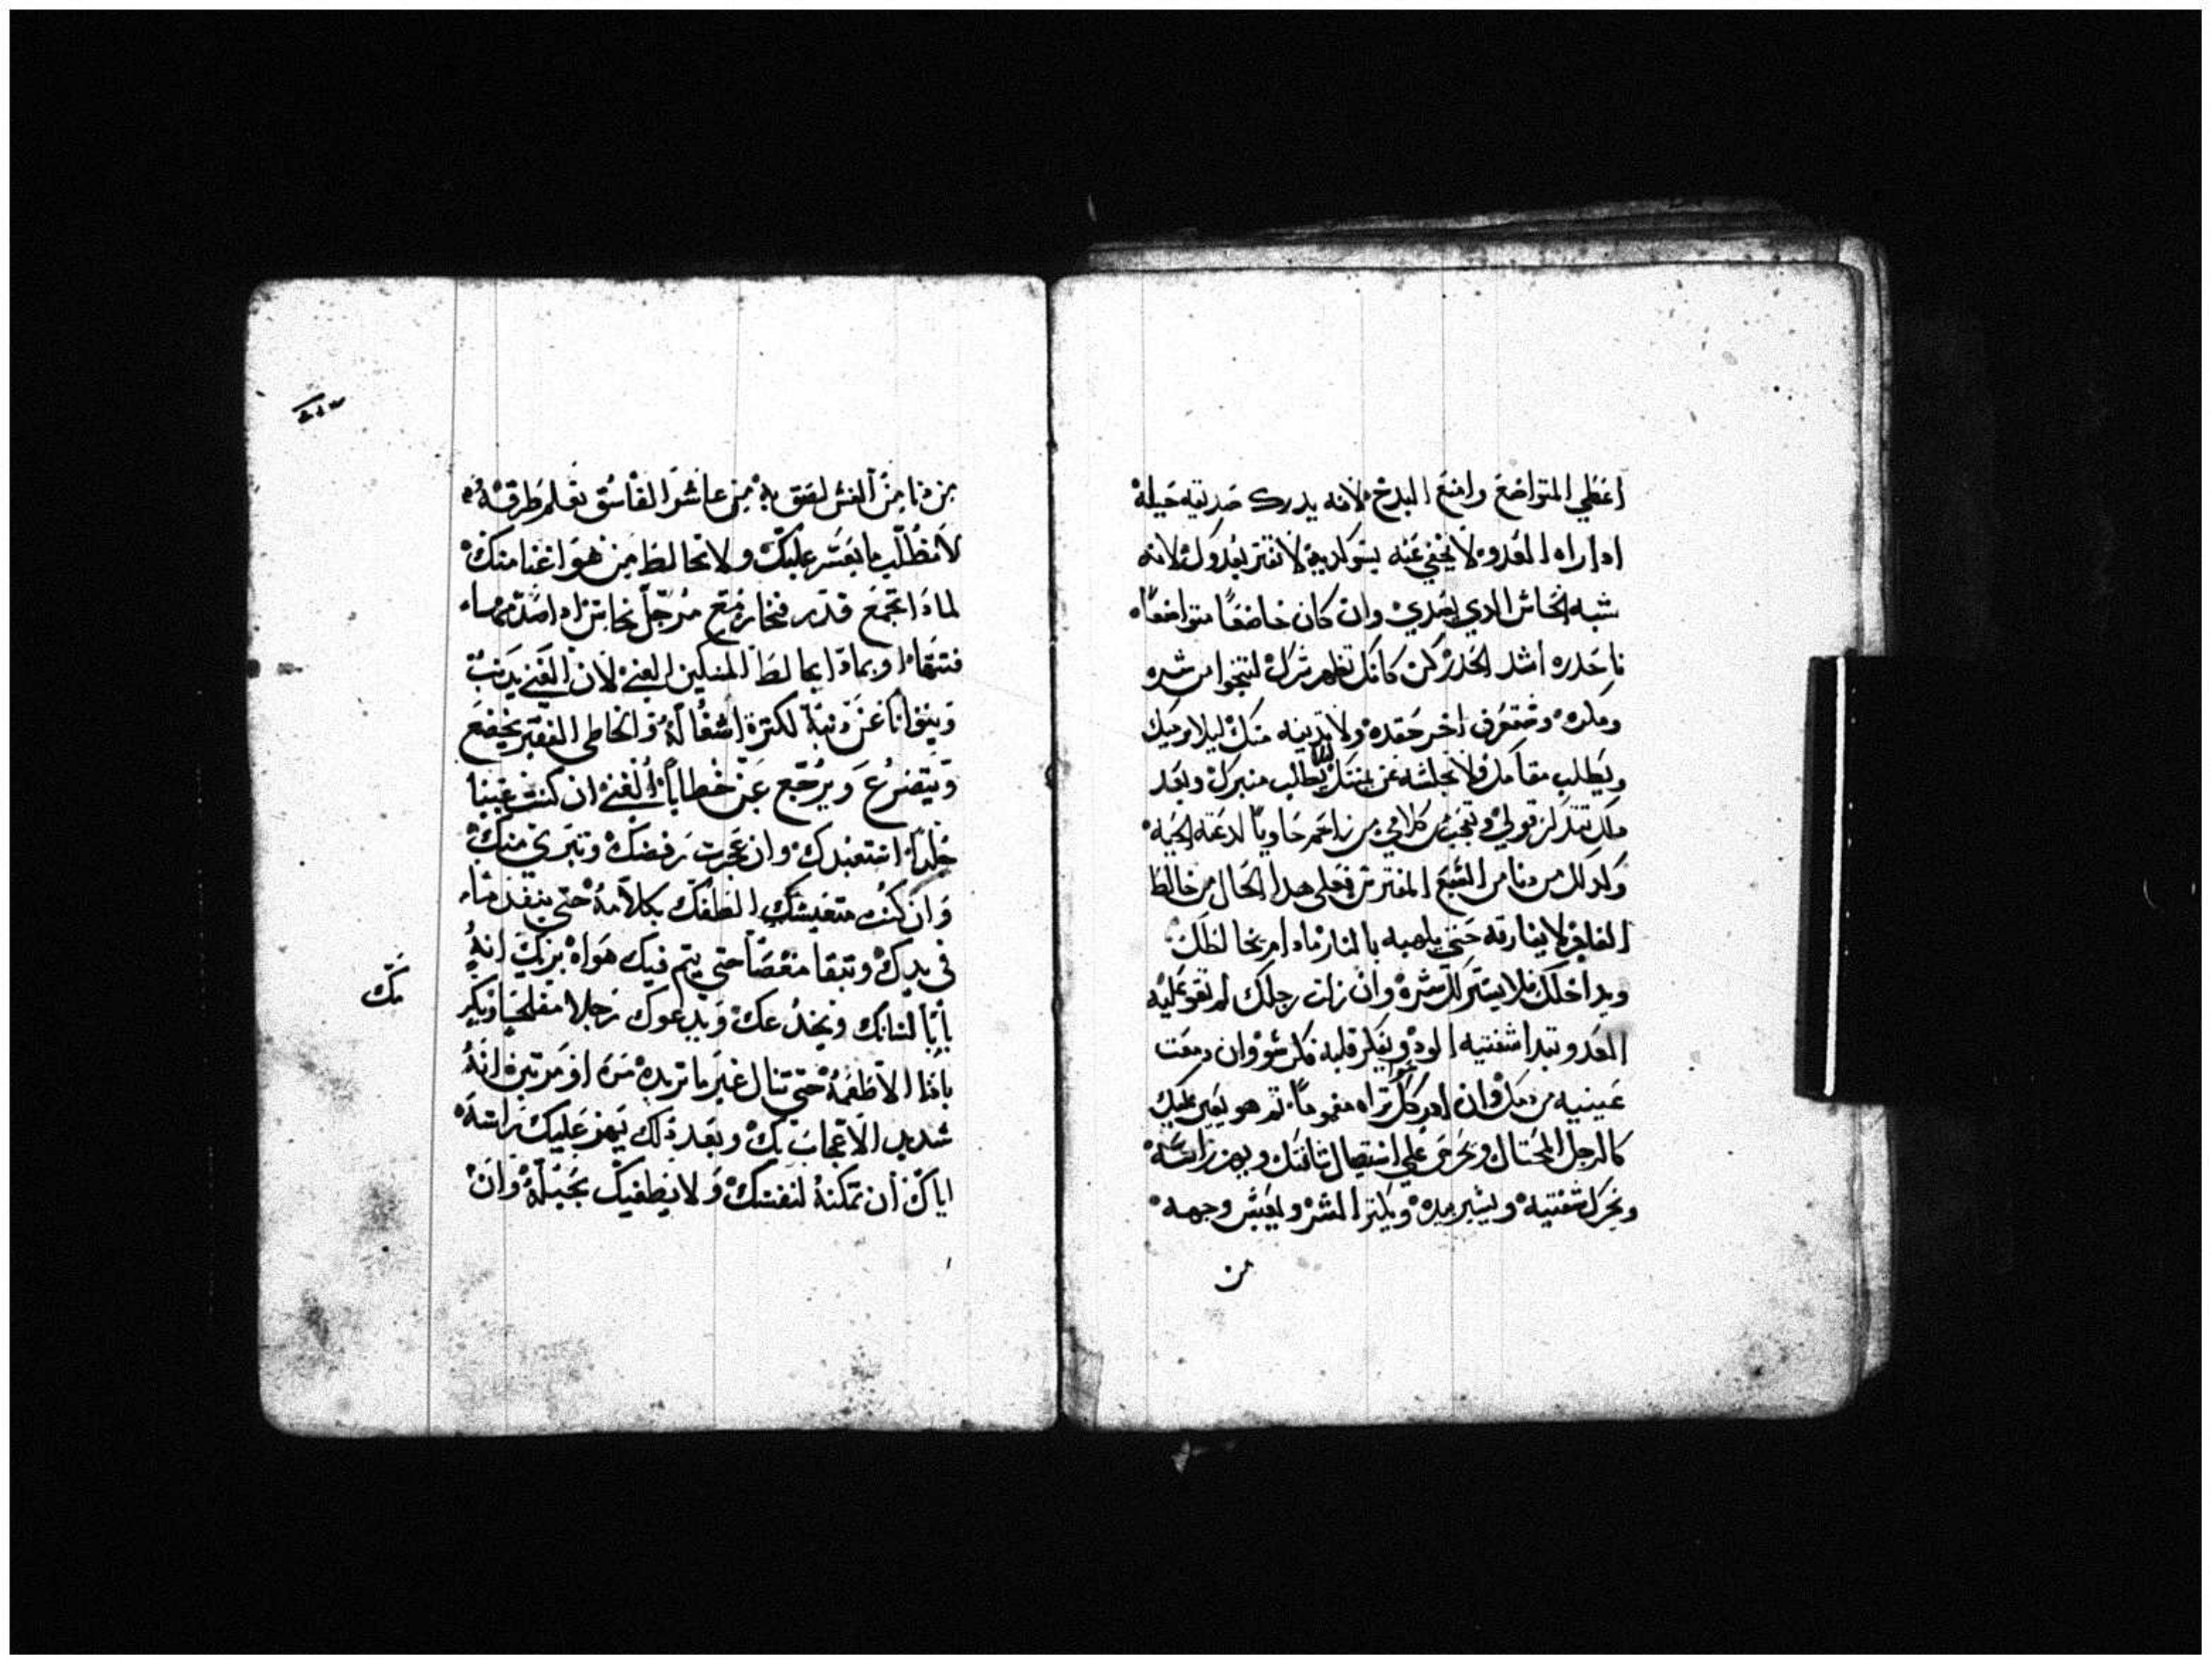 اعطي المتواضع وامنع البدخ لانه يدرك صديقه حيله
ادا راه العدو لا يخفي عنه بسو لديه لا تغتر بعدوك لانه
شبه النحاس الدي يصدي وان كان خاضعًا متواضعًا
فاحدره اشد الحدر كن كانك تظهر شرك لتنجوا من شره
ومكره وستعرف اخر حقده ولا تدنيه منك ليلا يرميك
ويطلب مقامك ولا تجلسه عن يمينك ليلا يطلب منبرك وبعد
دلك تتدكر قولي وتعجب من كلامي من يراحم حاويًا لدغته الحيه
وكدلك من دنا من السبع المفترس فعلي هدا الحال من خالط
الفاجر لا يفارقه حتي يلهبه بالنار مادام يخالطك
ويداخلك فلا يستر لك شره وان زلت رجلك لم تقو عليه
العدو تبدا شفتيه الود ويفكر قلبه فكر سو وان دمعت
عينيه من دمك وان ادركك تراه مغمومًا ثم هو يعين عليك
كالرجل المحتال ويحرص علي استيصال شافتك ويهز راسه
ويحرك شفتيه ويشير بيده ويكثر الشر ويعبس وجهه
من
من دنا من الغش لصق به من عاشر الفاسق تعلم طرقه
لا تطلب ما يعسر عليك ولا تخالط من هو اغنا منك
لمادا تجمع قدر فخار مع مرجل نحاس اد اصدمها
فتتقها وبمادا يخالط المسكين الغني لان الغني يدنب
وينوانا عن دنبه لكترة اشغاله والخاطي الفقير يخضع
ويتضرع ويرجع عن خطاياه الغني ان كنت عبينا
جلدا استعبدك وان عجزت رفضك وتبري منك
وان كنت متعيشك الطفك بكلامه حتي ينفد ما
في يدك وتبقا مغصا حتي يتم فيك هواه يزكك انه
بابا لسانك ويخدعك ويدعوك رجلا مفلحا ويكر
باقا الاطعمه حتي تنال غير ما تريده مره او مرتين انه
شديد الاعجاب بك وبعد ذلك يهز عليك راسه
اياك ان تمكنه لنفسك ولا يطغيك بحيله وان